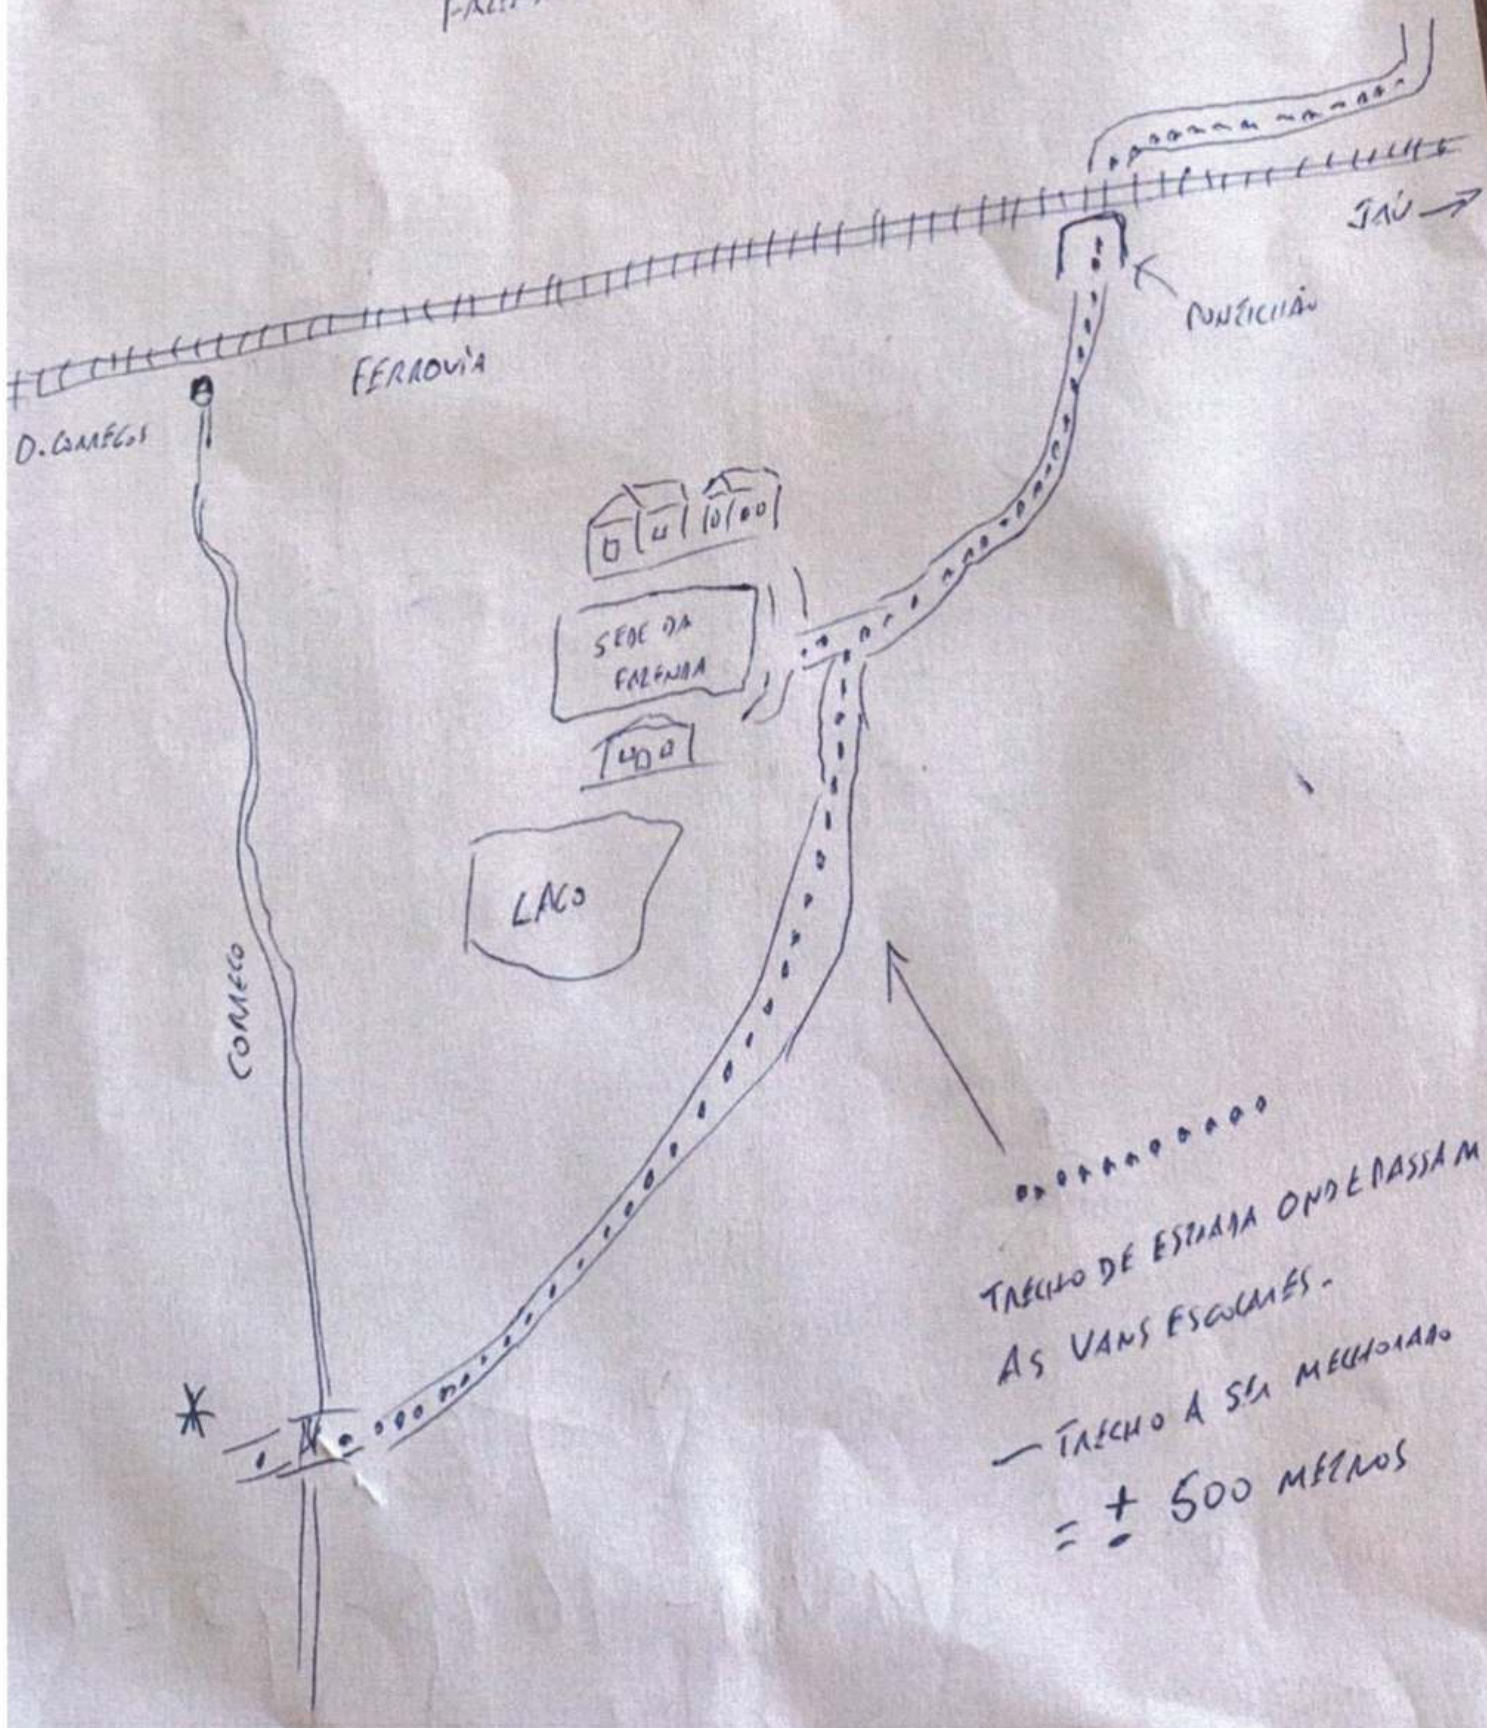 JAÚ
PONTILHÃO
FERROVIA
D. CORREGOS
SEDE DA
FAZENDA
LAGO
CORREGO
TRECHO DE ESTRADA ONDE PASSAM
AS VANS ESCOLARES.
— TRECHO A SER MELHORADO
= ± 500 METROS